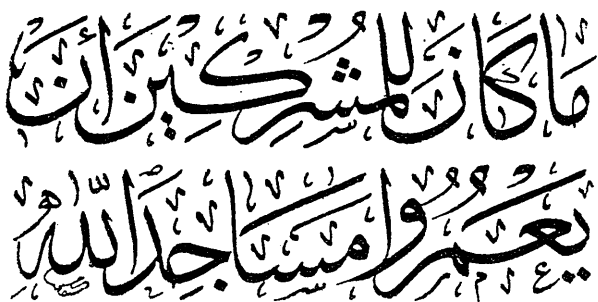 ما كان للمشركين أن
يعمروا مساجد الله